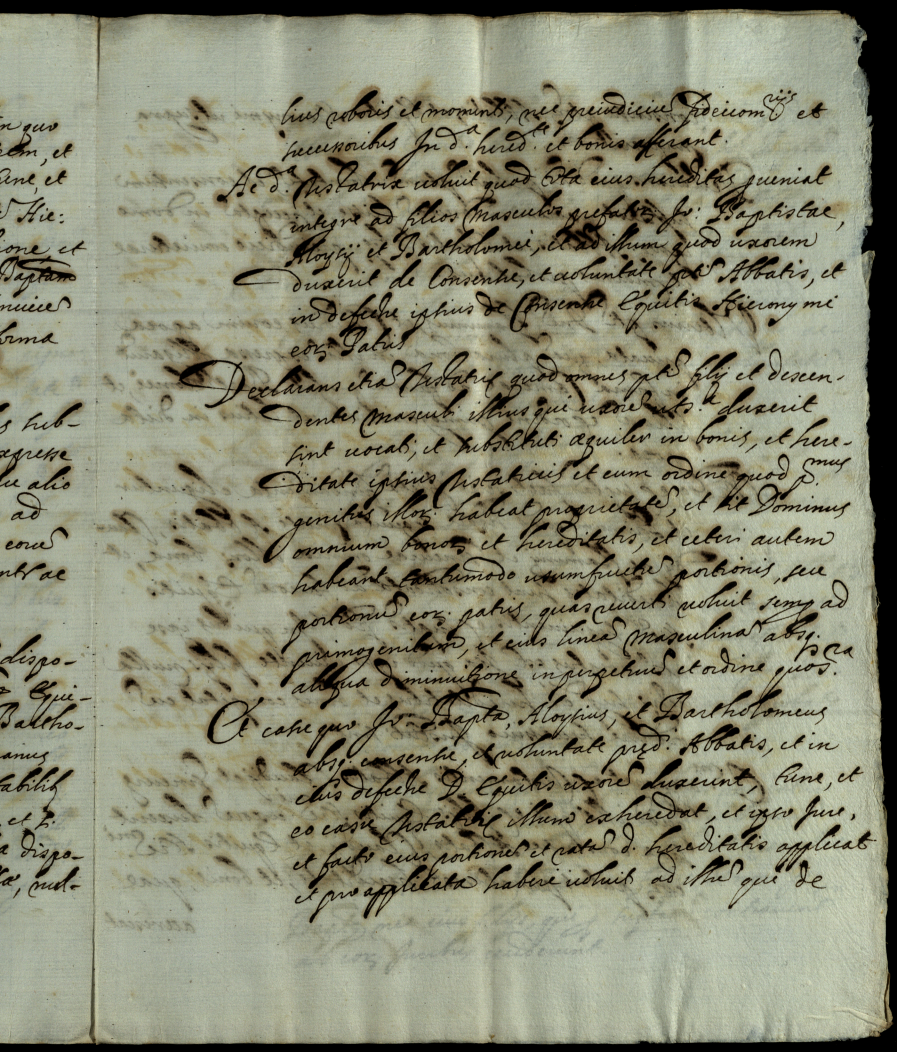 in quo
rem, et
tunc, et
Hie:
ione, et
Baptam
invicem
forma
s sub-
expresse
ve alio
ad
eorum
ntrae
dispo-
Equi-
Bartho-
anus
tabilis
et p.
a dispo-
nul-
lius roboris et momenti, nec preiudiciu fideicom.riis et
successoribus In d.a hered.te et bonis afferant.
Ac d.a Testatrix voluit quod tota eius hereditas pveniat
integre ad filios masculos prefator. Jo: Baptistae,
Aloysij et Bartholomei, et ad illum quod uxorem
duxerit de Consensu, et voluntate pti Abbatis, et
in defectu ipsius de Consensu Equitis Hieronymi
eor. Patris
Declarans etia Testatrix quod omnes pti filij et descen-
dentes masculi illius qui uxore uts.a duxerit
sint vocati, et substituti aequiler in bonis, et here-
ditate ipsius Testatricis et cum ordine quod p.mus
genitus illor. habeat proprietate, et sit Dominus
omnium bonor. et hereditatis, et ceteri autem
habeant tantumodo usumfructu portionis, seu
portionu eor. patris, quas reverti voluit semp ad
primogenitum, et eius linea masculina absq.
aliqua diminuitione inperpetuu et ordine quo s.ra
Et casu quo Jo: Bapta, Aloysius, et Bartholomeus
absq. consensu, et voluntate pred. Abbatis, et in
eius defectu D. Equitis uxore duxerint, tunc, et
eo casu Testatrix illum exheredat, et ipso Jure,
et facto eius portione et rata d. hereditatis applicat
et pro applicata habere voluit ad illu qui de